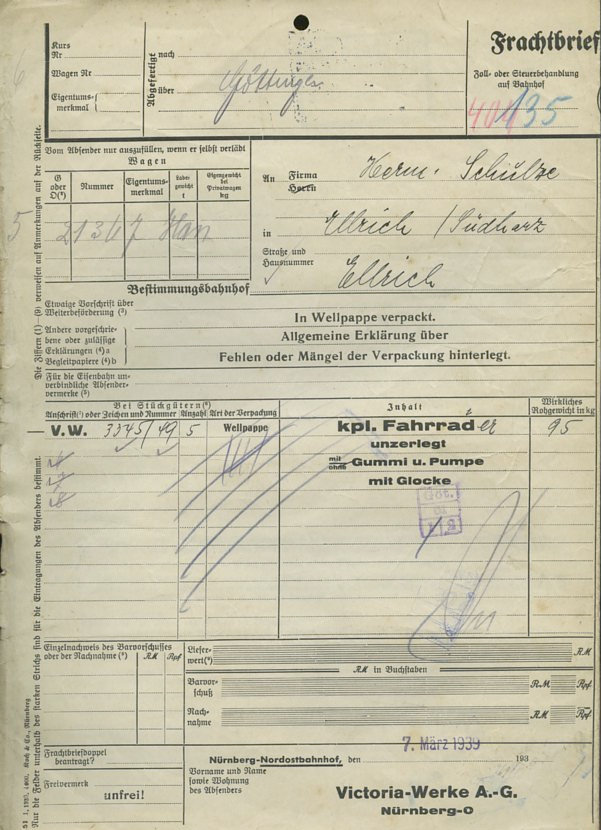 Kurs
Nr
Wagen Nr
Eigentums-
merkmal
Abgefertigt
nach
über
Göttingen
Frachtbrief
Zoll- oder Steuerbehandlung
auf Bahnhof
404
135
Vom Absender nur auszufüllen, wenn er selbst verlädt
Wagen
G oder O(⁴) Nummer Eigentums-merkmal Lade-gewicht t Eigengewicht des Privatwagens kg
21367 Han
5
6
An Firma Herrn Herm. Schulze
in Ellrich / Südharz
Straße und
Hausnummer
Bestimmungsbahnhof Ellrich
Etwaige Vorschrift über
Weiterbeförderung (³)
Andere vorgeschrie-
bene oder zulässige
Erklärungen (⁴) a
Begleitpapiere (⁴) b
In Wellpappe verpackt.
Allgemeine Erklärung über
Fehlen oder Mängel der Verpackung hinterlegt.
Für die Eisenbahn un-
verbindliche Absender-
vermerke (⁵)
Bei Stückgütern (⁶)
Anschrift(⁷) oder Zeichen und Nummer Anzahl Art der Verpackung Inhalt Wirkliches Rohgewicht in kg
V.W. 3345/49 5 Wellpappe kpl. Fahrräder 95
unzerlegt
mit
ohne Gummi u. Pumpe
mit Glocke
Göt.
1 2
Einzelnachweis des Barvorschusses
oder der Nachnahme (⁸) RM Rpf
Liefer-
wert(⁹) RM
RM in Buchstaben
Barvor-
schuß RM Rpf
Nach-
nahme RM Rpf
Frachtbriefdoppel
beantragt?
Freivermerk
unfrei!
Nürnberg-Nordostbahnhof, den 7. März 1939 193
Vorname und Name
sowie Wohnung
des Absenders
Victoria-Werke A.-G.
Nürnberg-O
Die Ziffern (1)—(9) verweisen auf Anmerkungen auf der Rückseite.
Nur die Felder unterhalb des starken Strichs sind für die Eintragungen des Absenders bestimmt.
Koch & Co., Nürnberg